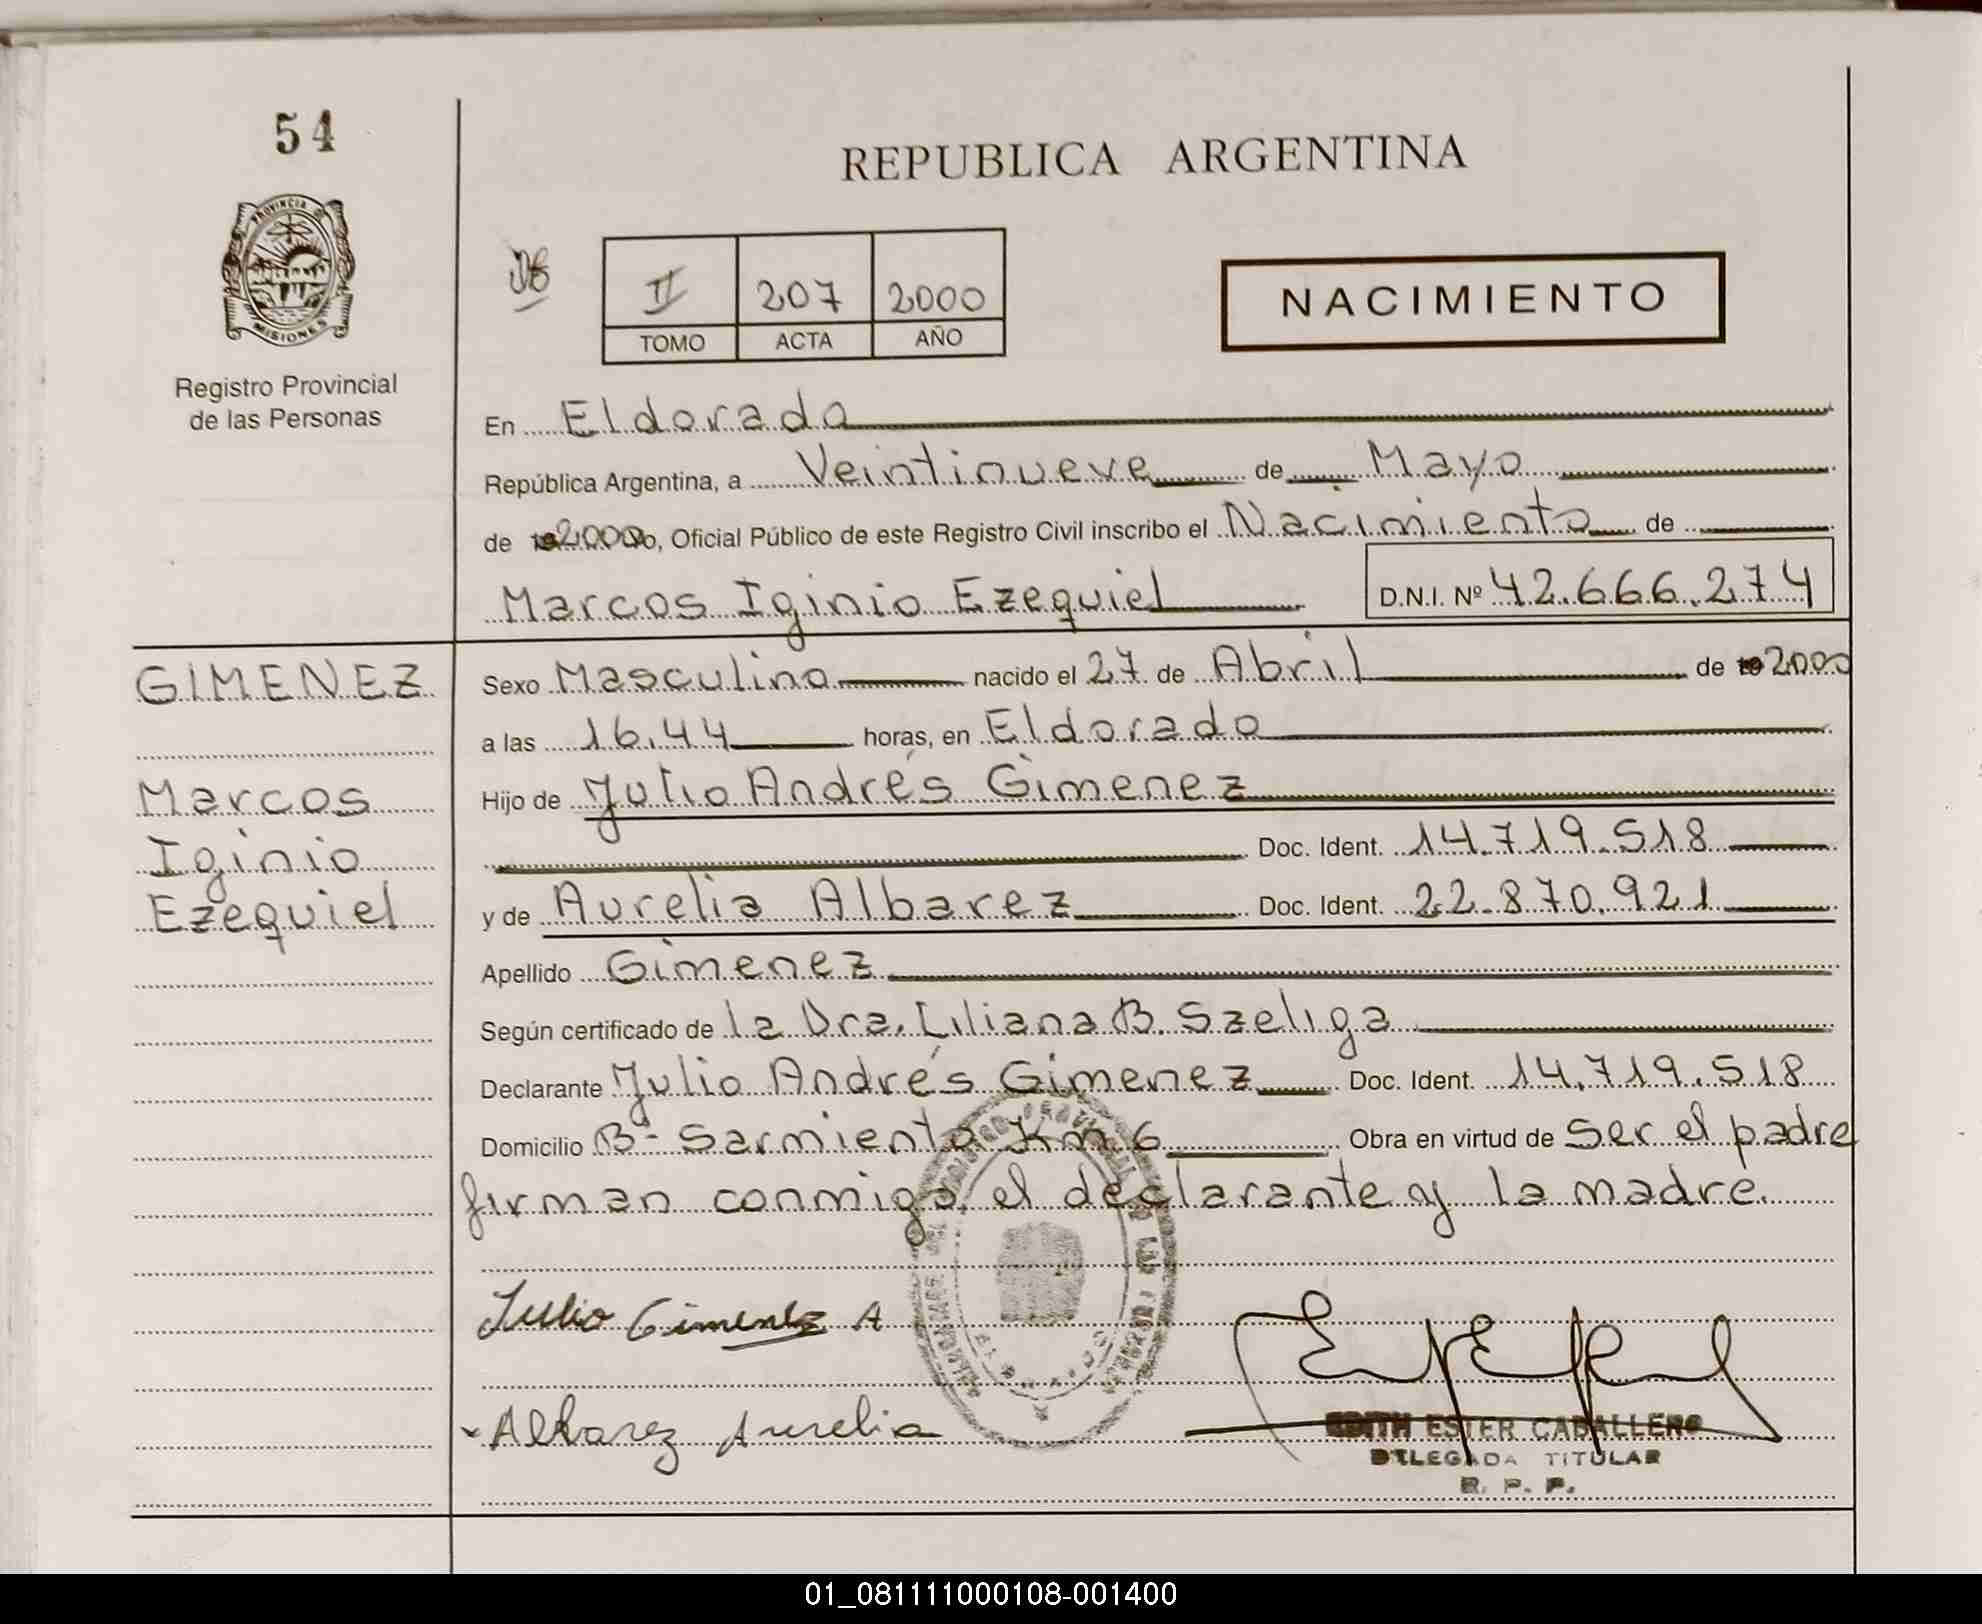 54
PROVINCIA DE
MISIONES
Registro Provincial
de las Personas
REPUBLICA ARGENTINA
II 207 2000
TOMO ACTA AÑO
NACIMIENTO
En Eldorado
República Argentina, a Veintinueve de Mayo
de 2000, Oficial Público de este Registro Civil inscribo el Nacimiento de
Marcos Iginio Ezequiel D.N.I. Nº 42.666.274
GIMENEZ
Marcos
Iginio
Ezequiel
Sexo Masculino nacido el 27 de Abril de 2000
a las 16.44 horas, en Eldorado
Hijo de Julio Andrés Gimenez
Doc. Ident. 14.719.518
y de Aurelia Albarez Doc. Ident. 22.870.921
Apellido Gimenez
Según certificado de la Dra. Liliana B. Szeliga
Declarante Julio Andrés Gimenez Doc. Ident. 14.719.518
Domicilio Bº Sarmiento Km 6 Obra en virtud de Ser el padre
firman conmigo, el declarante y la madre.
Julio Gimenez A
Albarez Aurelia
EDITH ESTER CABALLERO
DELEGADA TITULAR
R. P. P.
01_081111000108-001400